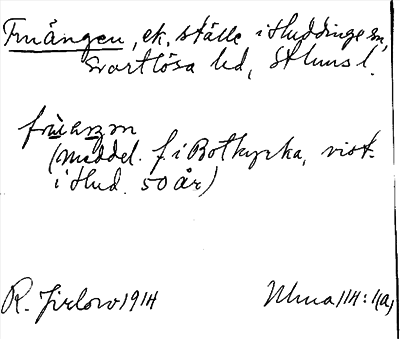 Fruängen, ek. ställe i Huddinge sn,
Svartlösa hd, Sthlms l.
frùaŋən
(meddel. f. i Botkyrka, vist.
i Hud. 50 år)
R. Jirlow 1914 Ulma 114:1(a)